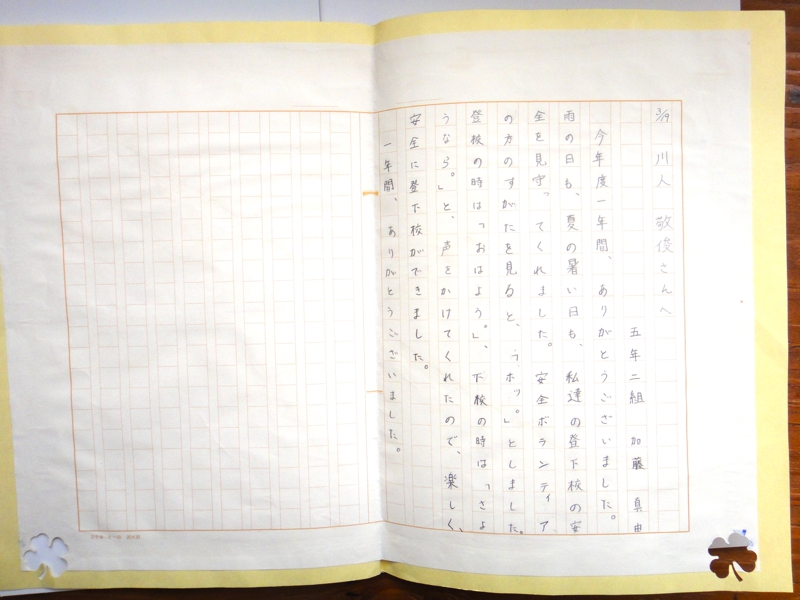 3/19 川人 敬俊さんへ
五年二組 加藤 真由
今年度一年間、ありがとうございました。
雨の日も、夏の暑い日も、私達の登下校の安
全を見守ってくれました。安全ボランティア
の方のすがたを見ると、「ホッ。」としました。
登校の時は「おはよう。」、下校の時は「さよ
うなら。」と、声をかけてくれたので、楽しく、
安全に登下校ができました。
一年間、ありがとうございました。